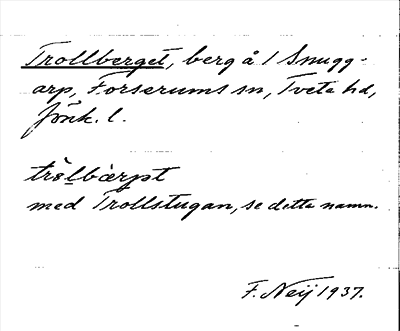 Trollberget, berg å 1 Snugg-
arp, Forserums sn, Tveta hd,
Jönk. l.
trò̀lbæ̀rjət
med Trollstugan, se detta namn.
F. Neij 1937.